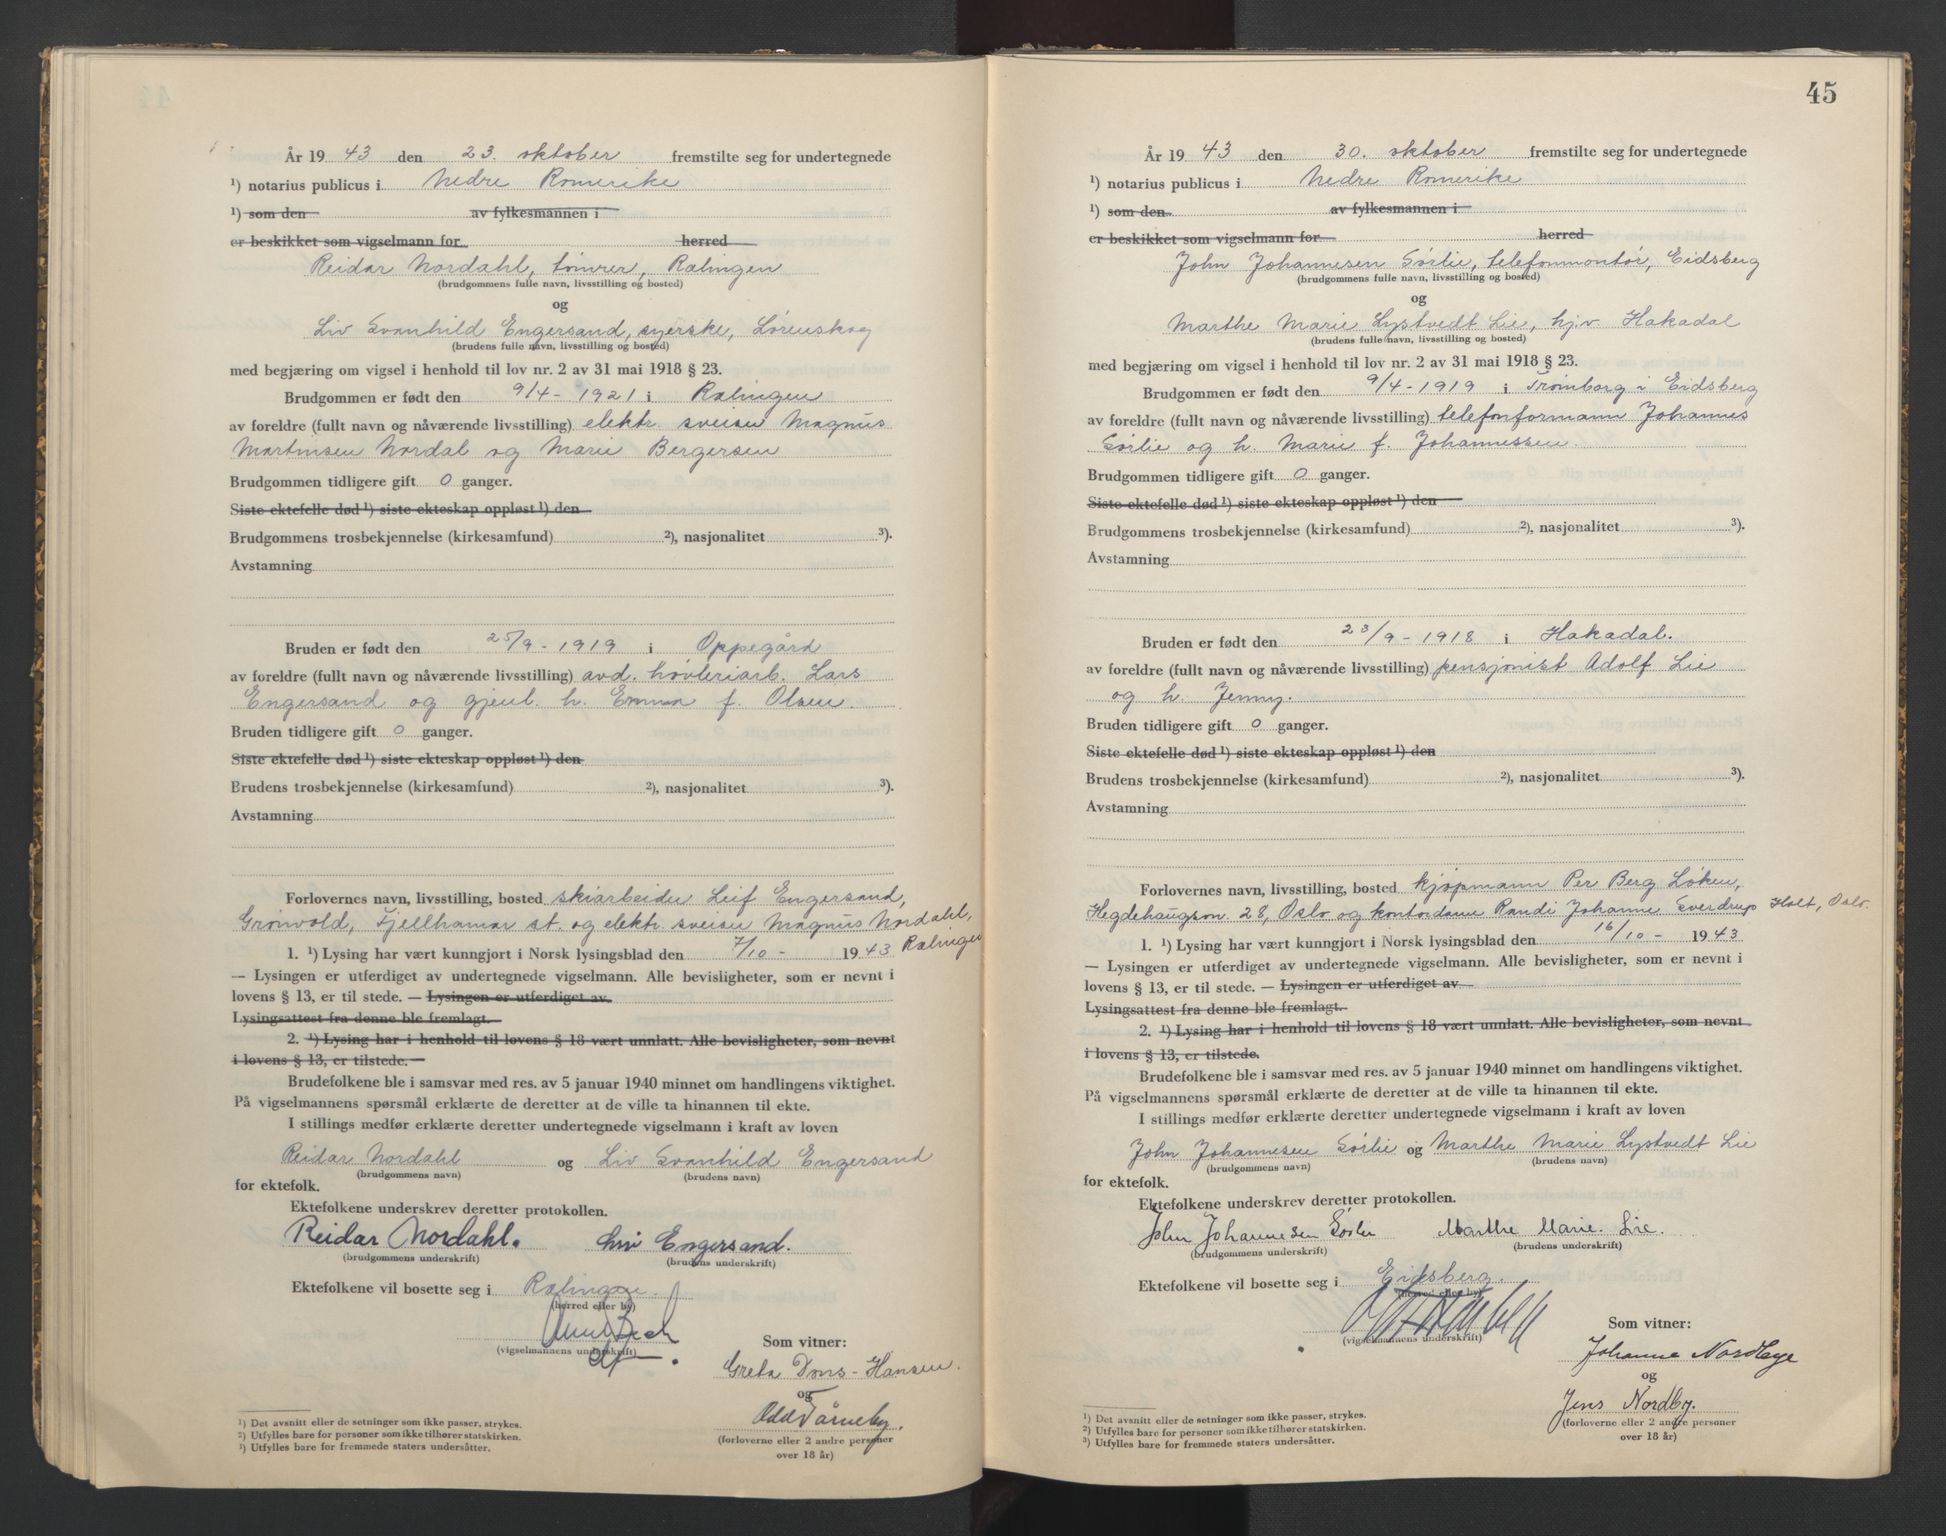 År 19 43 den 23. oktober fremstilte seg for undertegnede
¹) notarius publicus i Nedre Romerike
¹) som den av fylkesmannen i
er beskikket som vigselmann for herred
Reidar Nordahl, tømrer, Rælingen
(brudgommens fulle navn, livsstilling og bosted)
og
Liv Svanhild Engersand, syerske, Lørenskog
(brudens fulle navn, livsstilling og bosted)
med begjæring om vigsel i henhold til lov nr. 2 av 31 mai 1918 § 23.
Brudgommen er født den 9/4 - 1921 i Rælingen
av foreldre (fullt navn og nåværende livsstilling) elektr. sveiser Magnus
Martinsen Nordal og Marie Bergersen
Brudgommen tidligere gift 0 ganger.
Siste ektefelle død ¹) siste ekteskap oppløst ¹) den
Brudgommens trosbekjennelse (kirkesamfund) ²), nasjonalitet ³).
Avstamning
Bruden er født den 25/9 - 1919 i Oppegård
av foreldre (fullt navn og nåværende livsstilling) avd. høvleriarb. Lars
Engersand og gjenl. h. Emma f. Olsen.
Bruden tidligere gift 0 ganger.
Siste ektefelle død ¹) siste ekteskap oppløst ¹) den
Brudens trosbekjennelse (kirkesamfund) ²), nasjonalitet ³).
Avstamning
Forlovernes navn, livsstilling, bosted skiarbeider Leif Engersand,
Grønvold, Fjellhamar st. og elektr. sveiser Magnus Nordahl,
Rælingen
1. ¹) Lysing har vært kunngjort i Norsk lysingsblad den 7/10 - 19 43
— Lysingen er utferdiget av undertegnede vigselmann. Alle bevisligheter, som er nevnt i
lovens § 13, er til stede. — Lysingen er utferdiget av
Lysingsattest fra denne ble fremlagt.
2. ¹) Lysing har i henhold til lovens § 18 vært unnlatt. Alle bevisligheter, som nevnt
i lovens § 13, er tilstede. —
Brudefolkene ble i samsvar med res. av 5 januar 1940 minnet om handlingens viktighet.
På vigselmannens spørsmål erklærte de deretter at de ville ta hinannen til ekte.
I stillings medfør erklærte deretter undertegnede vigselmann i kraft av loven
Reidar Nordahl og Liv Svanhild Engersand
(brudgommens navn) (brudens navn)
for ektefolk.
Ektefolkene underskrev deretter protokollen.
Reidar Nordahl. Liv Engersand.
(brudgommens underskrift) (brudens underskrift)
Ektefolkene vil bosette seg i Rælingen.
(herred eller by)
(vigselmannens underskrift)
Som vitner:
Greta Dons-Hansen.
og
Odd Tårneby.
(forloverne eller 2 andre personer
over 18 år)
¹) Det avsnitt eller de setninger som ikke passer, strykes.
²) Utfylles bare for personer som ikke tilhører statskirken.
³) Utfylles bare for fremmede staters undersåtter.
45
År 19 43 den 30. oktober fremstilte seg for undertegnede
¹) notarius publicus i Nedre Romerike
¹) som den av fylkesmannen i
er beskikket som vigselmann for herred
John Johannesen Sørlie, telefonmontør, Eidsberg
(brudgommens fulle navn, livsstilling og bosted)
og
Marthe Marie Lystvedt Lie, hj.v Hakadal
(brudens fulle navn, livsstilling og bosted)
med begjæring om vigsel i henhold til lov nr. 2 av 31 mai 1918 § 23.
Brudgommen er født den 9/4 - 1919 i Trømborg i Eidsberg
av foreldre (fullt navn og nåværende livsstilling) telefonformann Johannes
Sørlie og h. Marie f. Johannessen.
Brudgommen tidligere gift 0 ganger.
Siste ektefelle død ¹) siste ekteskap oppløst ¹) den
Brudgommens trosbekjennelse (kirkesamfund) ²), nasjonalitet ³).
Avstamning
Bruden er født den 23/9 - 1918 i Hakadal.
av foreldre (fullt navn og nåværende livsstilling) pensjonist Adolf Lie
og h. Jenny.
Bruden tidligere gift 0 ganger.
Siste ektefelle død ¹) siste ekteskap oppløst ¹) den
Brudens trosbekjennelse (kirkesamfund) ²), nasjonalitet ³).
Avstamning
Forlovernes navn, livsstilling, bosted kjøpmann Per Berg Løken,
Hegdehaugson. 28, Oslo og kontordame Randi Johanne Sverdrup Holt, Oslo.
1. ¹) Lysing har vært kunngjort i Norsk lysingsblad den 16/10 - 19 43
— Lysingen er utferdiget av undertegnede vigselmann. Alle bevisligheter, som er nevnt i
lovens § 13, er til stede. — Lysingen er utferdiget av
Lysingsattest fra denne ble fremlagt.
2. ¹) Lysing har i henhold til lovens § 18 vært unnlatt. Alle bevisligheter, som nevnt
i lovens § 13, er tilstede.
Brudefolkene ble i samsvar med res. av 5 januar 1940 minnet om handlingens viktighet.
På vigselmannens spørsmål erklærte de deretter at de ville ta hinannen til ekte.
I stillings medfør erklærte deretter undertegnede vigselmann i kraft av loven
John Johannesen Sørlie og Marthe Marie Lystvedt Lie
(brudgommens navn) (brudens navn)
for ektefolk.
Ektefolkene underskrev deretter protokollen.
John Johannesen Sørlie Marthe Marie Lie.
(brudgommens underskrift) (brudens underskrift)
Ektefolkene vil bosette seg i Eidsberg.
(herred eller by)
(vigselmannens underskrift)
Som vitner:
Johanne
og
Jens Nordby.
(forloverne eller 2 andre personer
over 18 år)
¹) Det avsnitt eller de setninger som ikke passer, strykes.
²) Utfylles bare for personer som ikke tilhører statskirken.
³) Utfylles bare for fremmede staters undersåtter.